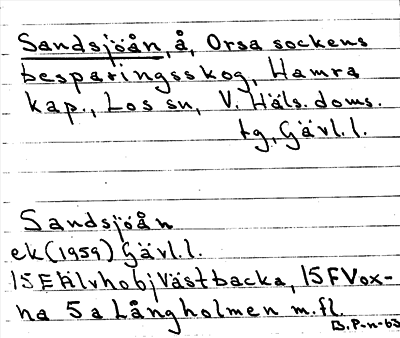 Sandsjöån, å, Orsa sockens
besparingsskog, Hamra
kap., Los sn, V. Häls. doms.
tg, Gävl.l.
Sandsjöån
ek (1959) Gävl.l.
15E Älvhobj Västbacka, 15F Vox-
na 5a Långholmen m.fl.
B.P-n-63